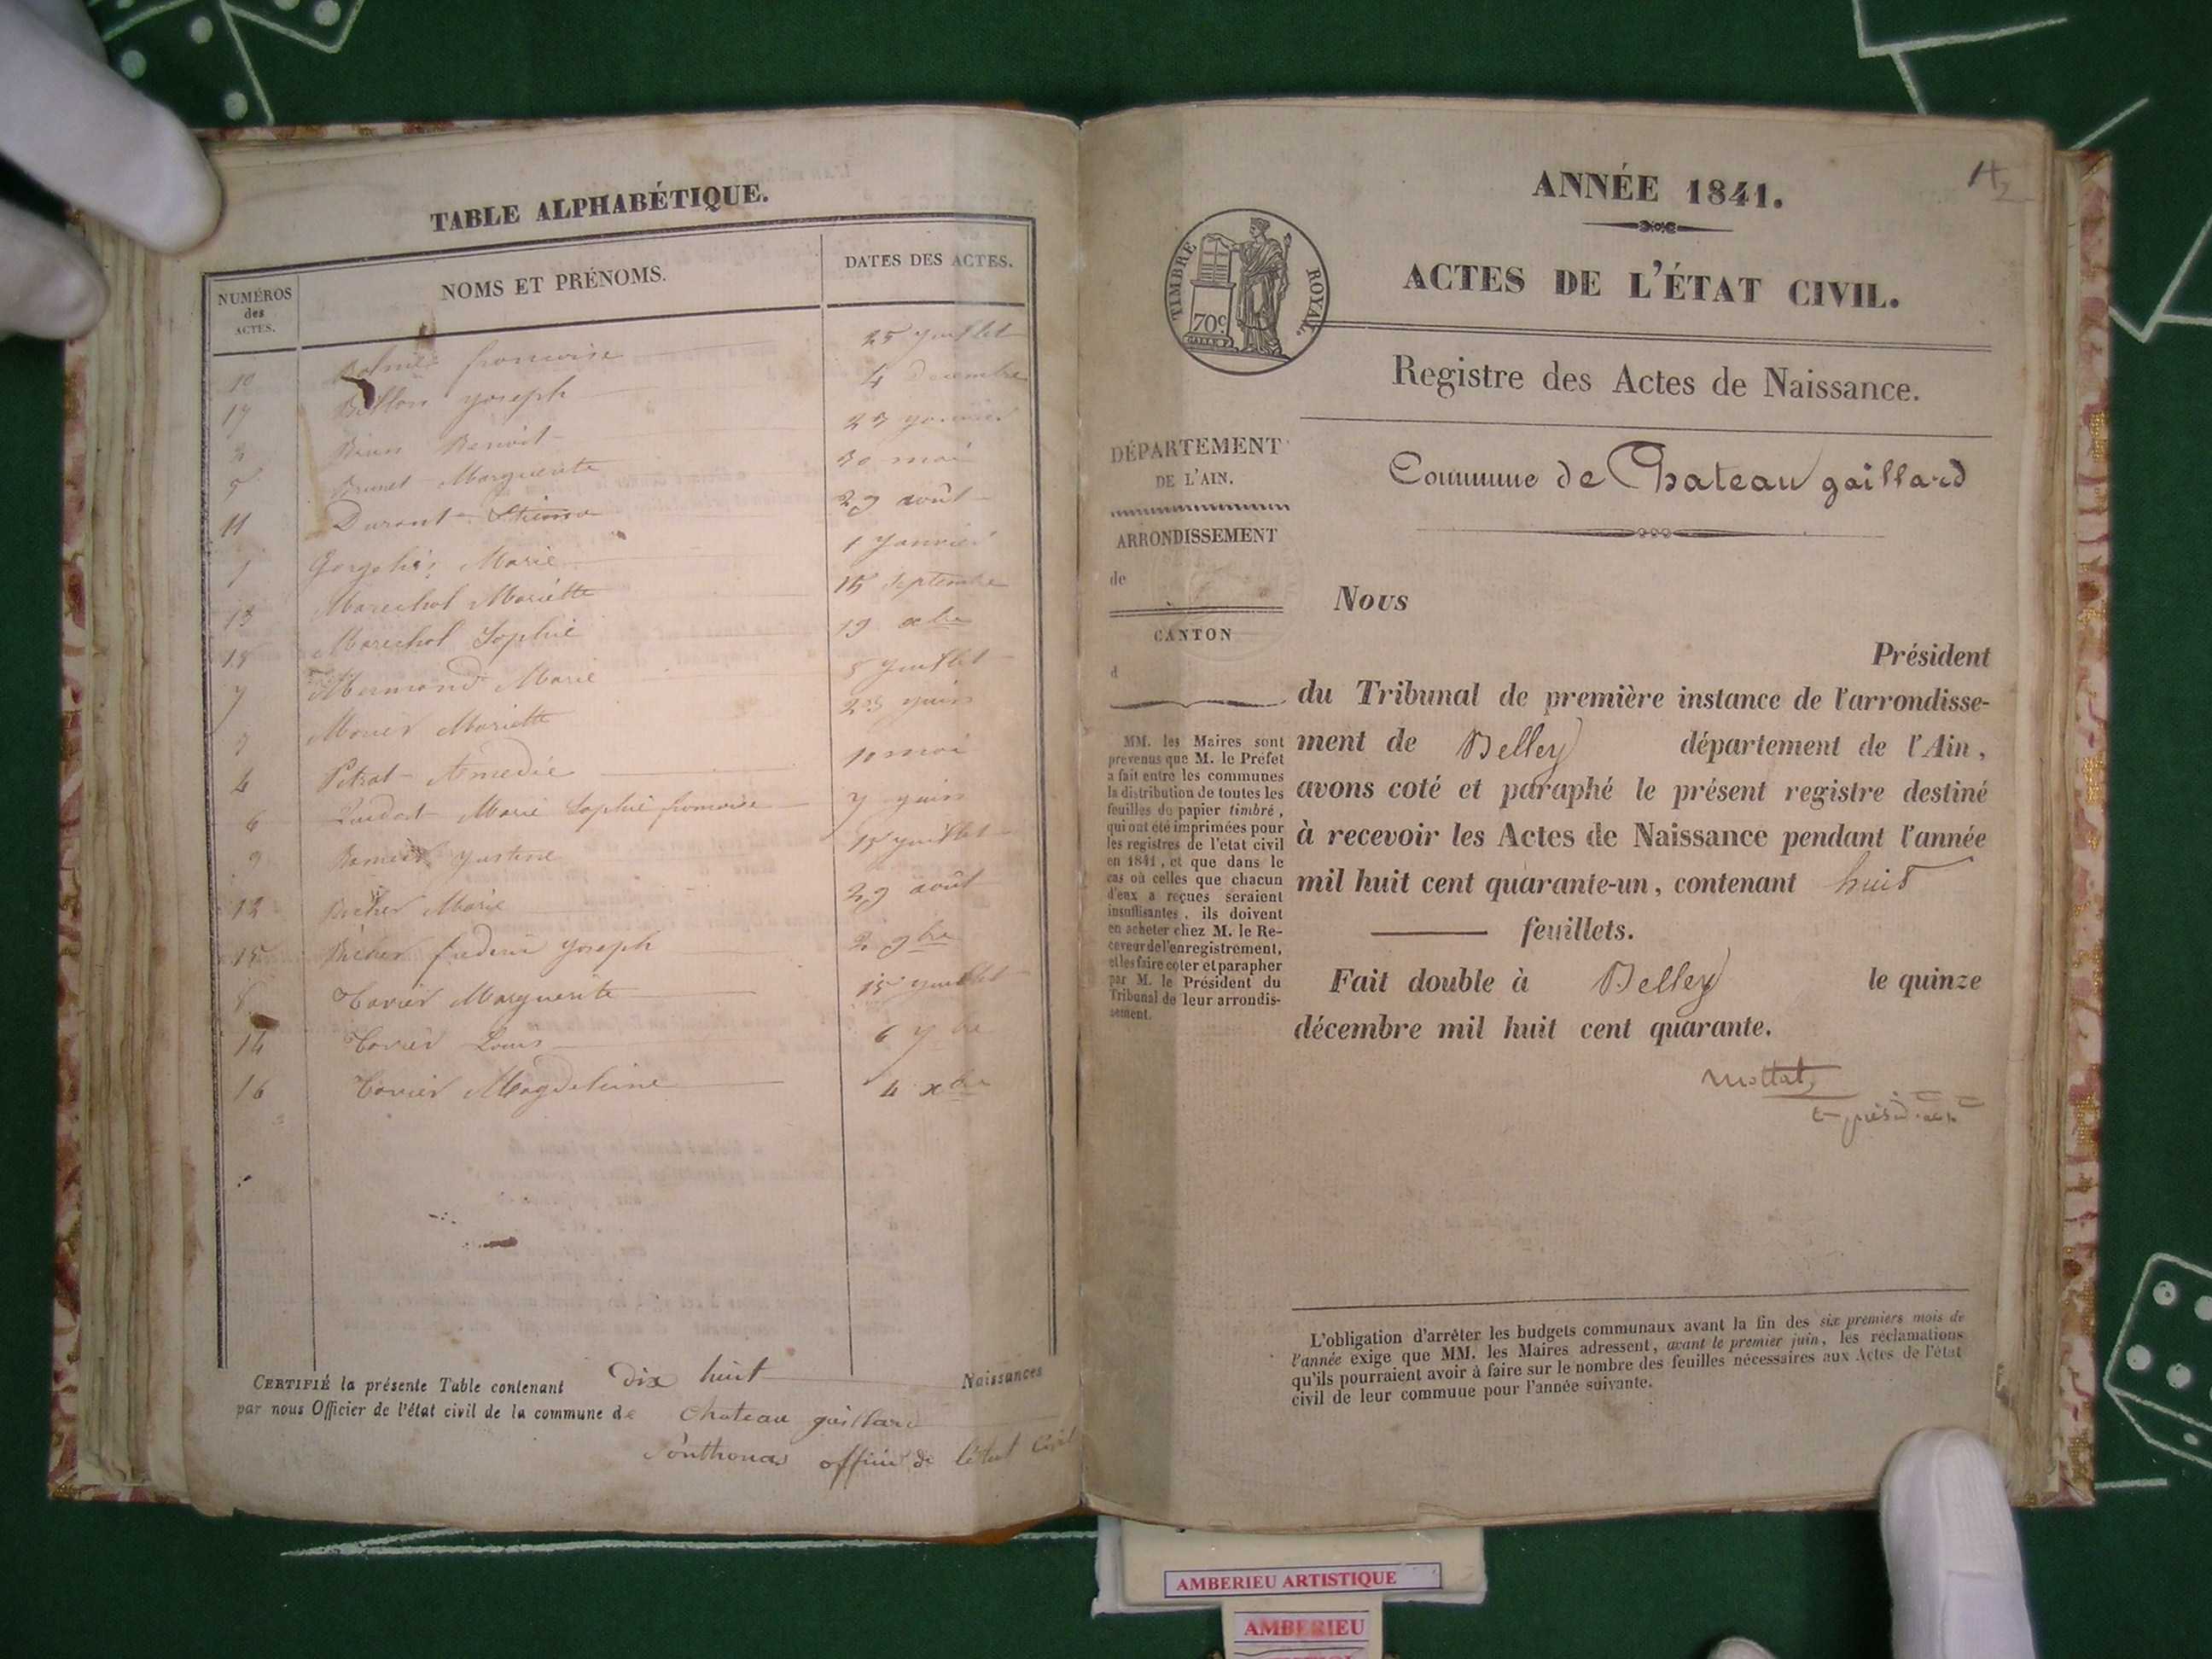 TABLE ALPHABÉTIQUE.
NUMÉROS
des
ACTES.
NOMS ET PRÉNOMS.
DATES DES ACTES.
10 francoise 25 juillet
17 Billon joseph 4 decembre
2 Benoit 23 janvier
5 Brunet Marguerite 30 mai
11 Durant Etienne 29 août
1 Marie 1 janvier
13 Marechal Mariette 15 septembre
18 Marechal Sophie 19 xbre
7 Mermand Marie 5 juillet
Mariette 23 juin
4 Amedée 10 mai
6 Marie Sophie francoise 7 juin
9 justine 15 juillet
12 Marie 29 août
15 joseph 2 9bre
8 Tavier Marguerite 15 juillet
14 Tavier Louis 6 7bre
16 Tavier Magdeleine 4 xbre
CERTIFIÉ la présente Table contenant dix huit Naissances
par nous Officier de l'état civil de la commune de chateau gaillard
officier de l'état civil
ANNÉE 1841.
ACTES DE L'ÉTAT CIVIL.
TIMBRE ROYAL.
70c
Registre des Actes de Naissance.
Commune de Chateau gaillard
DÉPARTEMENT
DE L'AIN.
ARRONDISSEMENT
de
CANTON
d
MM. les Maires sont
prévenus que M. le Préfet
a fait entre les communes
la distribution de toutes les
feuilles de papier timbré,
qui ont été imprimées pour
les registres de l'état civil
en 1841, et que dans le
cas où celles que chacun
d'eux a reçues seraient
insuffisantes, ils doivent
en acheter chez M. le Re-
ceveur de l'enregistrement,
et les faire coter et parapher
par M. le Président du
Tribunal de leur arrondis-
sement.
Nous
Président
du Tribunal de première instance de l'arrondisse-
ment de Belley département de l'Ain,
avons coté et paraphé le présent registre destiné
à recevoir les Actes de Naissance pendant l'année
mil huit cent quarante-un, contenant huit
feuillets.
Fait double à Belley le quinze
décembre mil huit cent quarante.
L'obligation d'arrêter les budgets communaux avant la fin des six premiers mois de
l'année exige que MM. les Maires adressent, avant le premier juin, les réclamations
qu'ils pourraient avoir à faire sur le nombre des feuilles nécessaires aux Actes de l'état
civil de leur commune pour l'année suivante.
AMBERIEU ARTISTIQUE
AMBERIEU